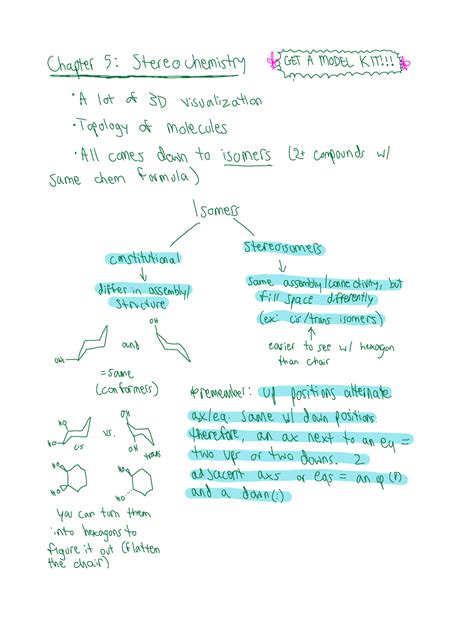 Chapter 5: Stereochemistry
GET A MODEL KIT!!!
• A lot of 3D visualization
• Topology of molecules
• All comes down to isomers (2+ compounds w/
same chem formula)
Isomers
constitutional
differ in assembly/
structure
stereoisomers
same assembly/connectivity, but
fill space differently
(ex: cis/trans isomers)
easier to see w/ hexagon
than chair
OH
OH
and
= same
(conformers)
*remember: up positions alternate
ax/eq. same w/ down positions
therefore, an ax next to an eq =
two ups or two downs. 2
adjacent axs or eqs = an up (1)
and a down (:)
HO
HO
cis
vs.
OH
HO
trans
HO
HO
OH
HO
you can turn them
into hexagons to
figure it out (flatten
the chair)